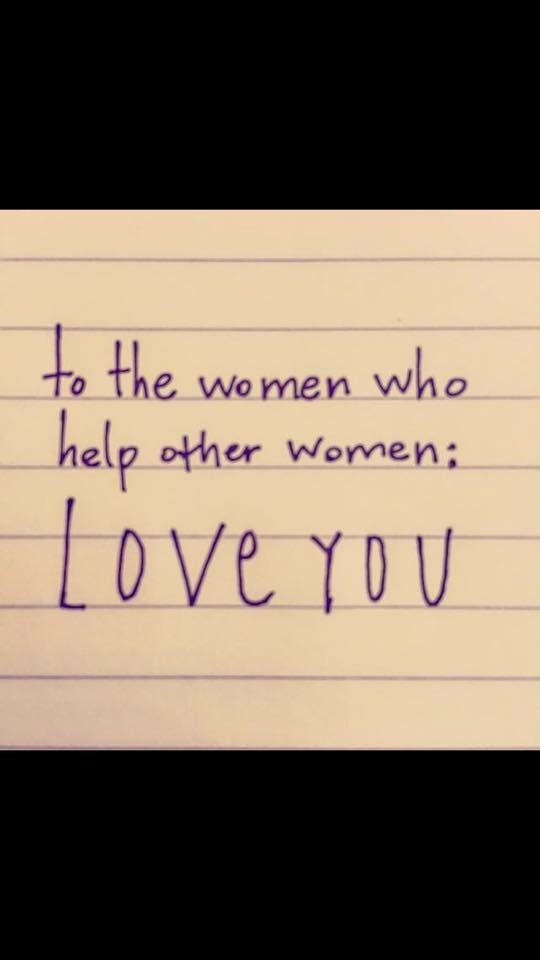 to the women who
help other women:
Love YOU